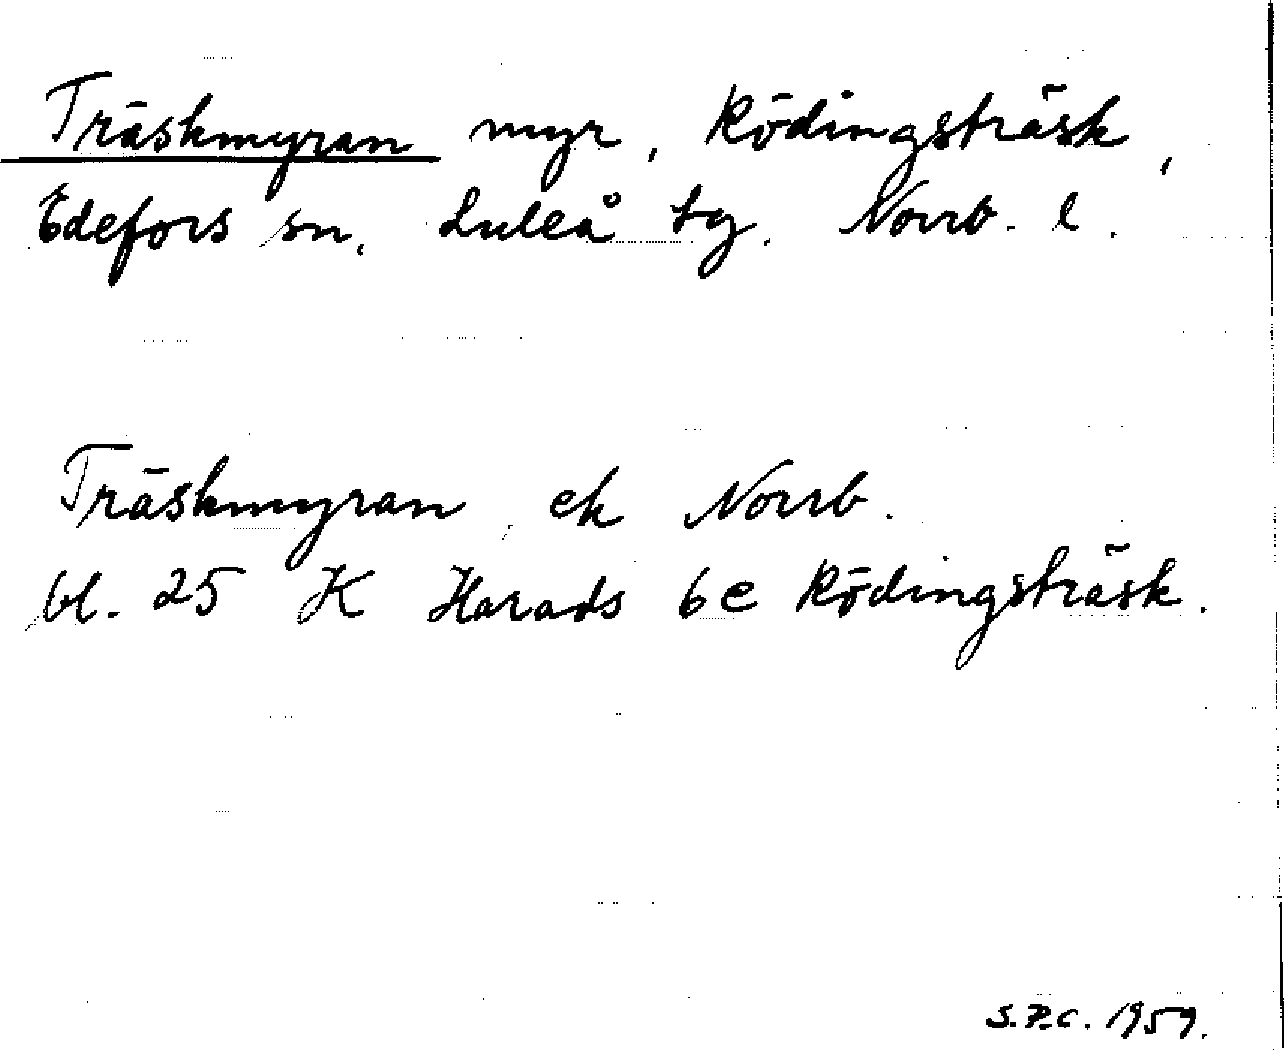 Träskmyran myr, Rödingsträsk,
Edefors sn. Luleå tg. Norrb. l.
Träskmyran, ek Norrb.
bl. 25 K Harads 6e Rödingsträsk.
S.P.C. 1959.